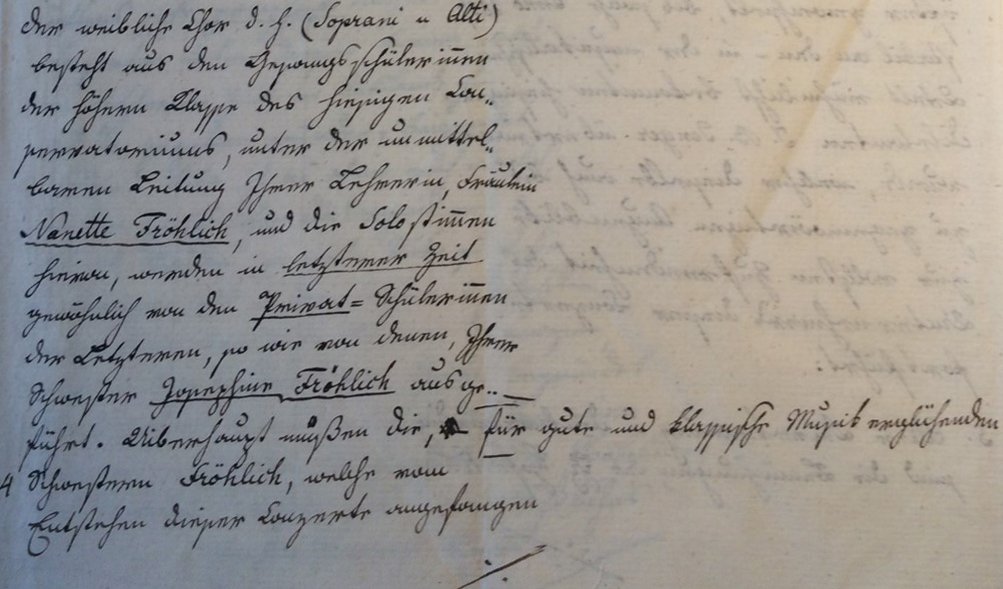 der weibliche Chor d. h. (Soprani u Alti)
besteht aus den Gesangsschülerinnen
der höhern Classe des hiesigen Con„
servatoriums, unter der unmittel„
baren Leitung Ihrer Lehrerin, Fräulein
Nanette Fröhlich, und die Solostimmen
hievon, werden in letzterer Zeit
gewöhnlich von den Privat= Schülerinnen
der Letzteren, so wie von denen, Ihrer
Schwester Josephine Fröhlich ausge„
führt. Uiberhaupt müßen die, für gute und klassische Musik erglühenden
4 Schwestern Fröhlich, welche vom
Entstehen dieser Conzerte angefangen